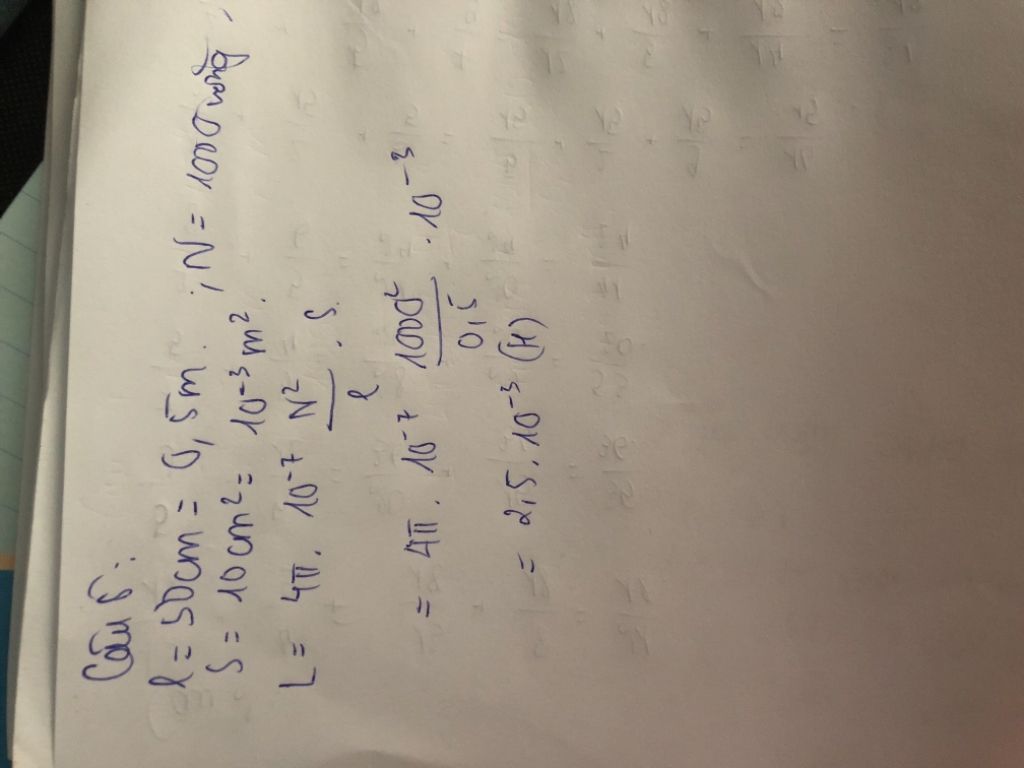 Câu 5:
l = 50cm = 0,5m. ; N = 1000 vòng,
S = 10cm² = 10⁻³ m².
L = 4π. 10⁻⁷ N²/l . S.
= 4π. 10⁻⁷ 1000²/0,5 . 10⁻³
= 2,5. 10⁻³ (H)